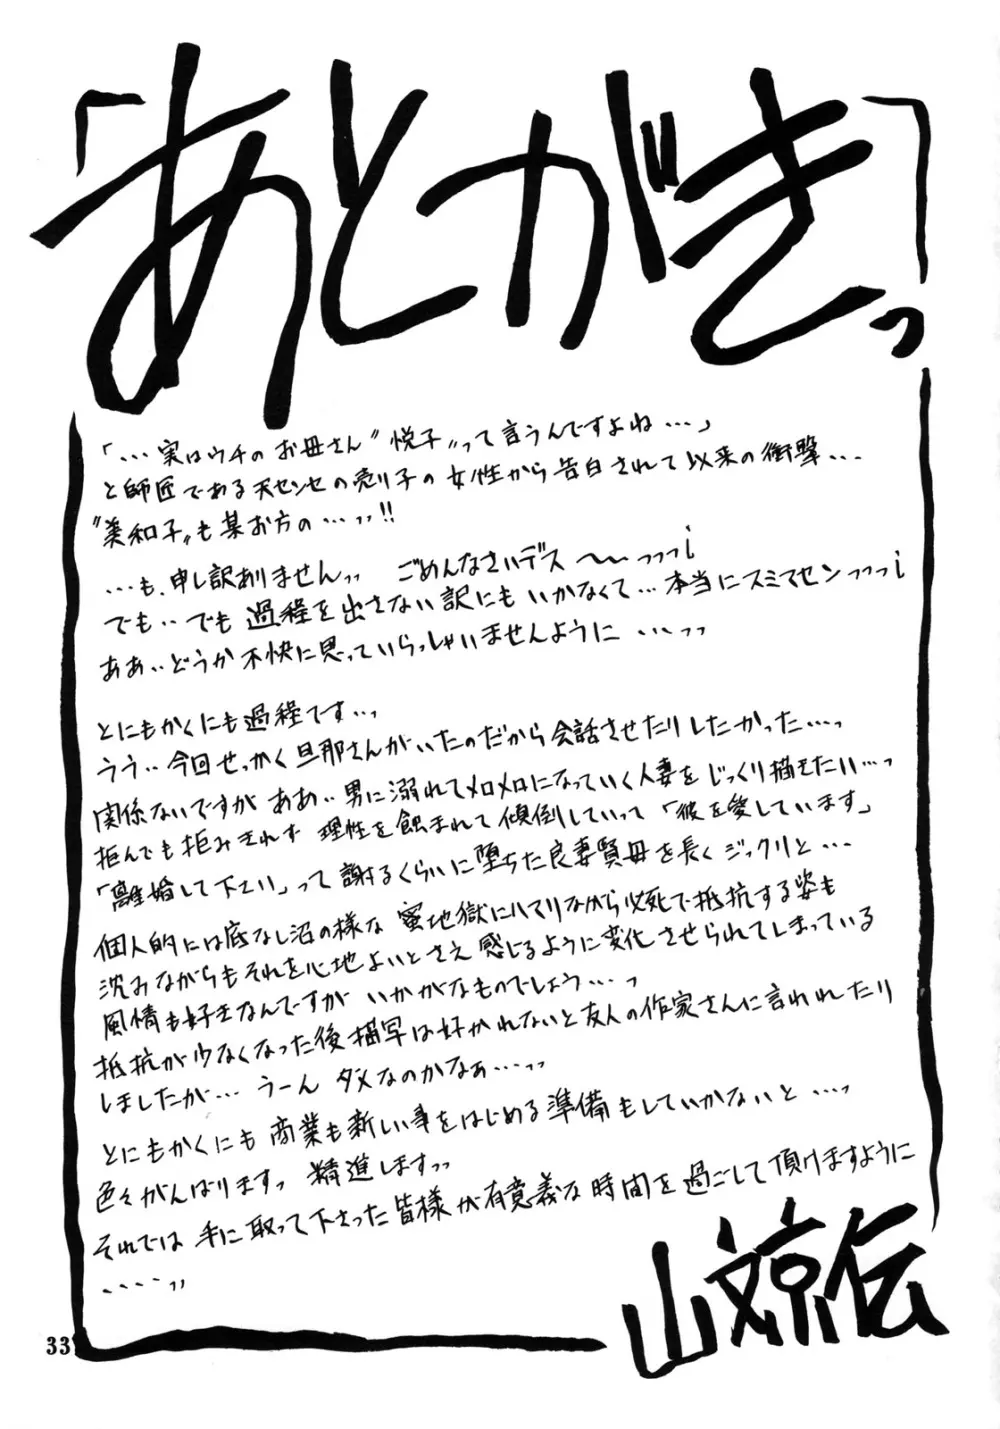 「あとがきっ」
「…実はウチのお母さん〝悦子〟って言うんですよね…」
と師匠である天センセの売り子の女性から告白されて以来の衝撃…
〝美和子〟も某お方の…ッッ!!
…も、申し訳ありませんッッ ごめんなさいデス〜〜ッッッ!
でも‥でも過程を出さない訳にもいかなくて…本当にスミマセンッッッ!
ああ‥どうか不快に思っていらっしゃいませんように…ッッ
とにもかくにも過程です…っ
うう‥今回せっかく旦那さんがいたのだから会話させたりしたかった…っ
関係ないですが ああ‥男に溺れてメロメロになっていく人妻をじっくり描きたい…っ
拒んでも拒みきれず 理性を蝕まれて傾倒していって「彼を愛しています」
「離婚して下さい」って謝るくらいに堕ちた良妻賢母を長くジックリと…
個人的には底なし沼の様な蜜地獄にハマりながら必死で抵抗する姿も
沈みながらもそれを心地よいとさえ感じるように変化させられてしまっている
風情も好きなんですが いかがなものでしょう…っ
抵抗が少なくなった後描写は好かれないと友人の作家さんに言われたり
しましたが… うーん ダメなのかなぁ…ッッ
とにもかくにも商業も新しい事をはじめる準備もしていかないと…っ
色々がんばりますっ 精進しますッッ
それでは 手に取って下さった皆様が有意義な時間を過ごして頂けますように
…‥ッッ
山文京伝
33